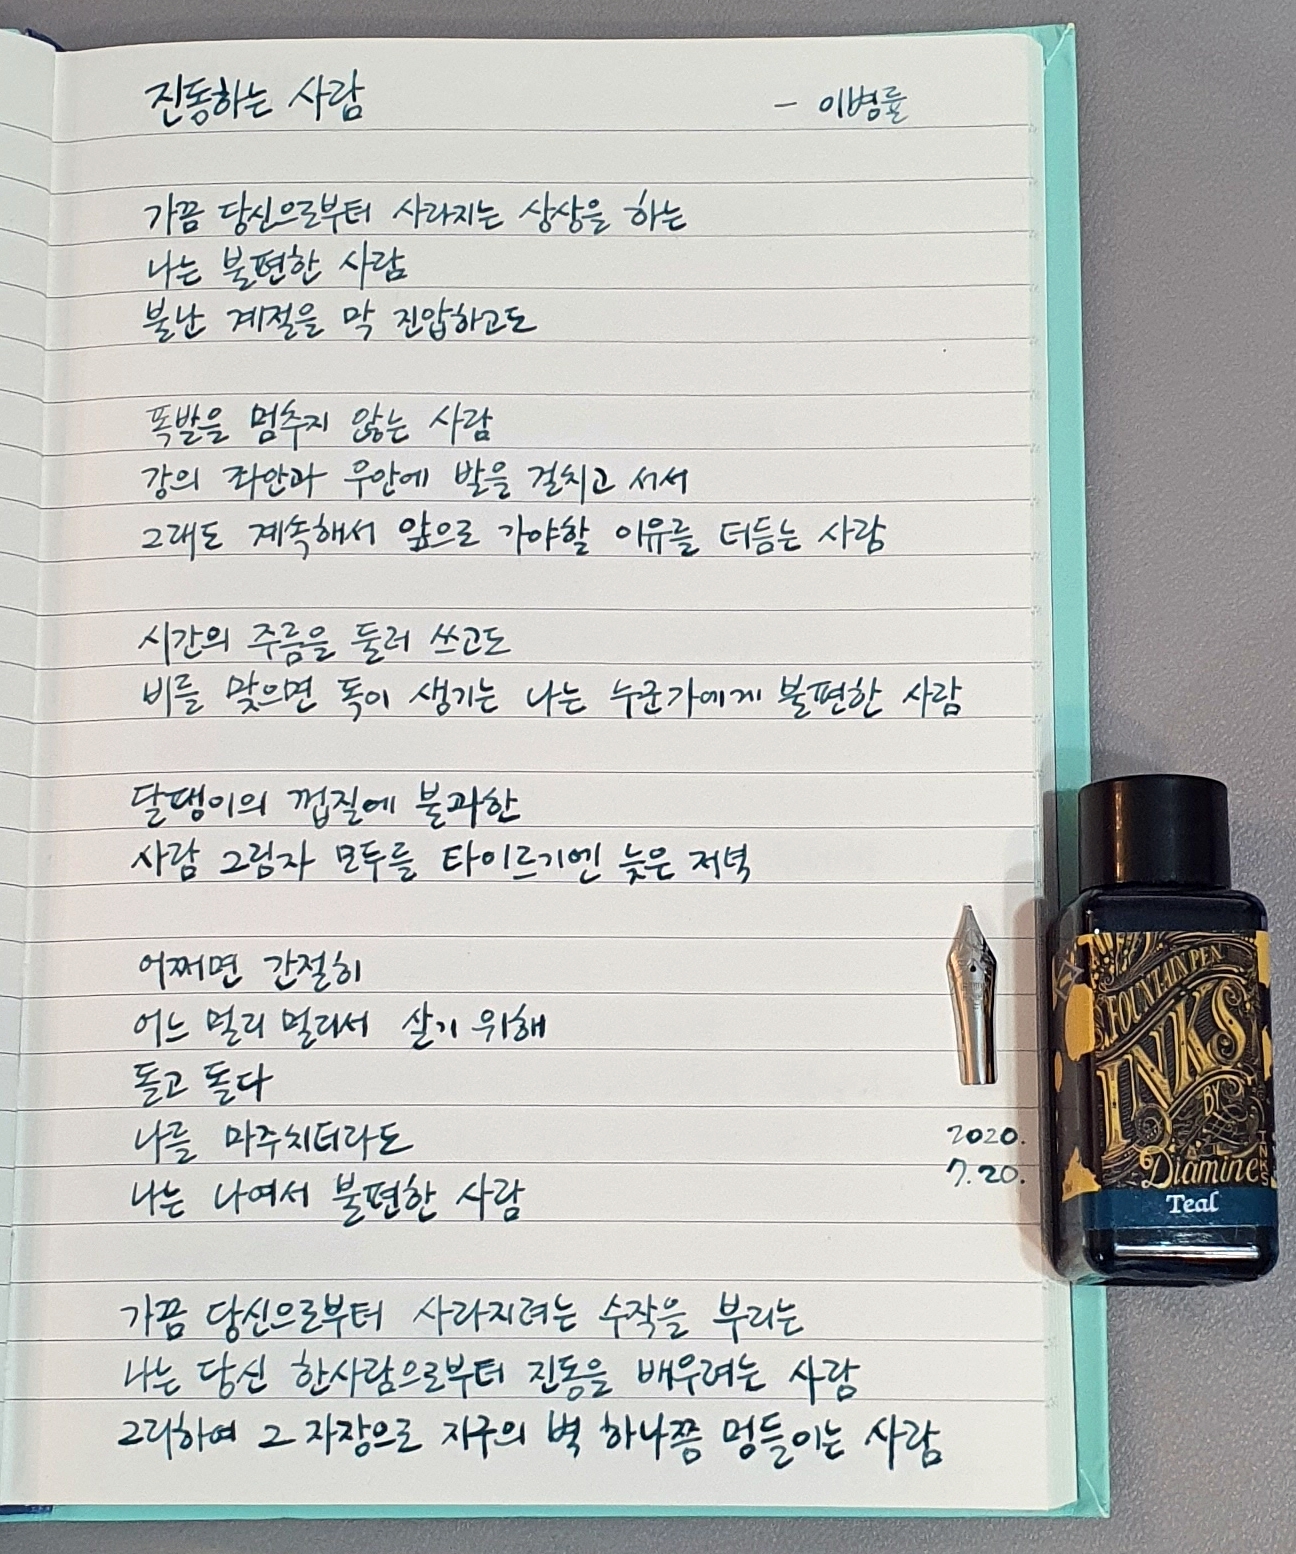 진동하는 사람 - 이병률
가끔 당신으로부터 사라지는 상상을 하는
나는 불편한 사람
불난 계절을 막 진압하고도
폭발을 멈추지 않는 사람
강의 좌안과 우안에 발을 걸치고 서서
그래도 계속해서 앞으로 가야할 이유를 더듬는 사람
시간의 주름을 둘러 쓰고도
비를 맞으면 독이 생기는 나는 누군가에게 불편한 사람
달팽이의 껍질에 불과한
사람 그림자 모두를 타이르기엔 늦은 저녁
어쩌면 간절히
어느 멀리 멀리서 살기 위해
돌고 돌다
나를 마주치더라도
나는 나여서 불편한 사람
가끔 당신으로부터 사라지려는 수작을 부리는
나는 당신 한사람으로부터 진동을 배우려는 사람
그리하여 그 자장으로 지구의 벽 하나쯤 멍들이는 사람
2020.
7.20.
FOUNTAIN PEN
INKS
BY
Diamine
INKS
Teal